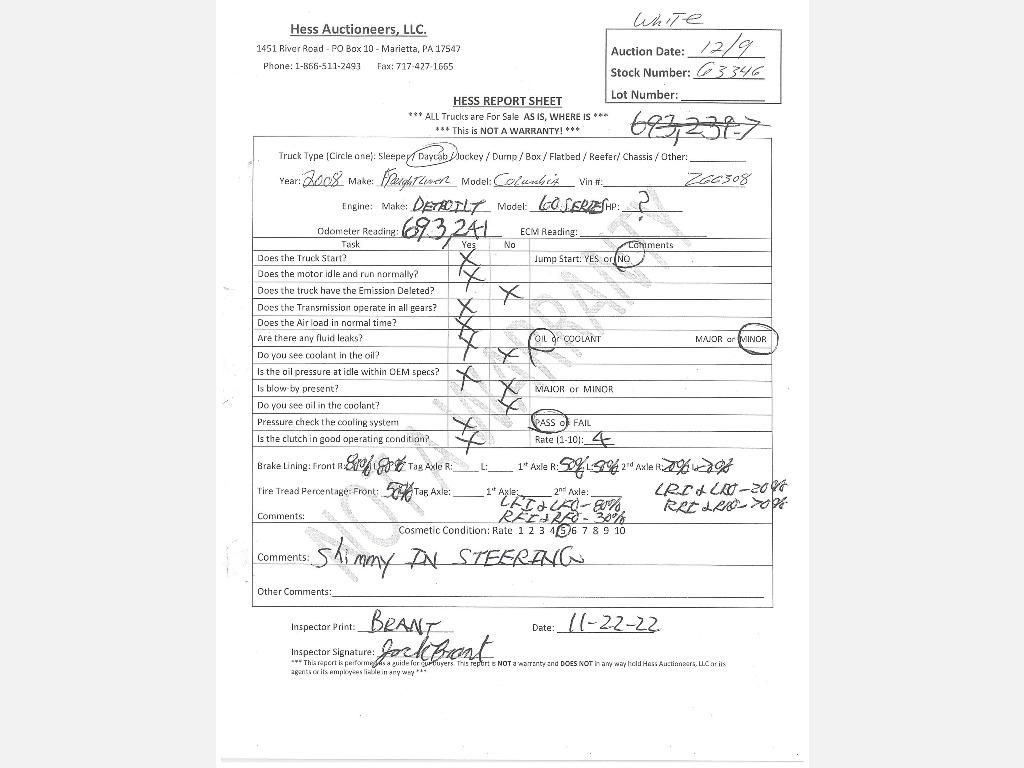 WHITE
Hess Auctioneers, LLC.
1451 River Road - PO Box 10 - Marietta, PA 17547
Phone: 1-866-511-2493 Fax: 717-427-1665
Auction Date: 12/9
Stock Number: 63346
Lot Number:
HESS REPORT SHEET
*** ALL Trucks are For Sale AS IS, WHERE IS ***
*** This is NOT A WARRANTY! ***
693,239.7
Truck Type (Circle one): Sleeper / Daycab / Jockey / Dump / Box / Flatbed / Reefer/ Chassis / Other:
Year: 2008 Make: Freightliner Model: Columbia Vin #: Z66308
Engine: Make: DETROIT Model: 60 SERIES HP: ?
Odometer Reading: 693,241 ECM Reading:
Task Yes No Comments
Does the Truck Start? X Jump Start: YES or NO
Does the motor idle and run normally? X
Does the truck have the Emission Deleted? X
Does the Transmission operate in all gears? X
Does the Air load in normal time? X
Are there any fluid leaks? X OIL or COOLANT MAJOR or MINOR
Do you see coolant in the oil? X
Is the oil pressure at idle within OEM specs? X
Is blow-by present? X MAJOR or MINOR
Do you see oil in the coolant? X
Pressure check the cooling system X PASS or FAIL
Is the clutch in good operating condition? X Rate (1-10): 4
Brake Lining: Front R: 80% L: 80% Tag Axle R: L: 1st Axle R: 50% L: 50% 2nd Axle R: 70% L: 70%
Tire Tread Percentage: Front: 50% Tag Axle: 1st Axle: 2nd Axle: LRI & LRO - 20%
LFI & LFO - 80% RRI & RRO - 70%
Comments: RFI & RFO - 30%
Cosmetic Condition: Rate 1 2 3 4 5 6 7 8 9 10
Comments: Shimmy IN STEERING
Other Comments:
Inspector Print: BRANT Date: 11-22-22
Inspector Signature: Jack Brant
*** This report is performed as a guide for our buyers. This report is NOT a warranty and DOES NOT in any way hold Hess Auctioneers, LLC or its
agents or its employees liable in any way ***
NOT A WARRANTY